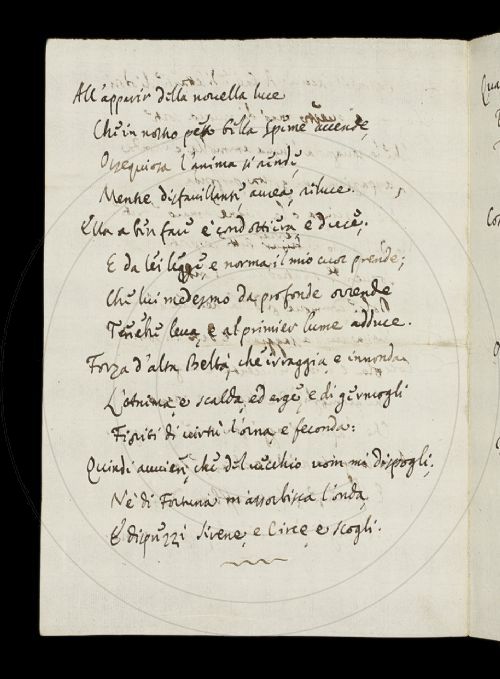 All'apparir della novella luce
Che in nostro petto bella Speme accende
Ossequiosa l'anima si rende,
Mentre disfavillante, aurea, riluce.
Ella a ben fare è condottiera e duce;
E da lei legge, e norma il mio cuor prende;
Che lui medesmo da profonde orrende
Tenebre leva, e al primier lume adduce.
Forza d'alta Beltà, che irraggia, e innonda
L'Anima, e scalda, ed erge, e di germogli
Fioriti di virtù l'orna, e feconda:
Quindi avvien, che del vecchio uom mi dispogli;
Nè di Fortuna m'assorbisca l'onda,
E disprezzi Sirene, e Circe, e scogli.
Qua
Co